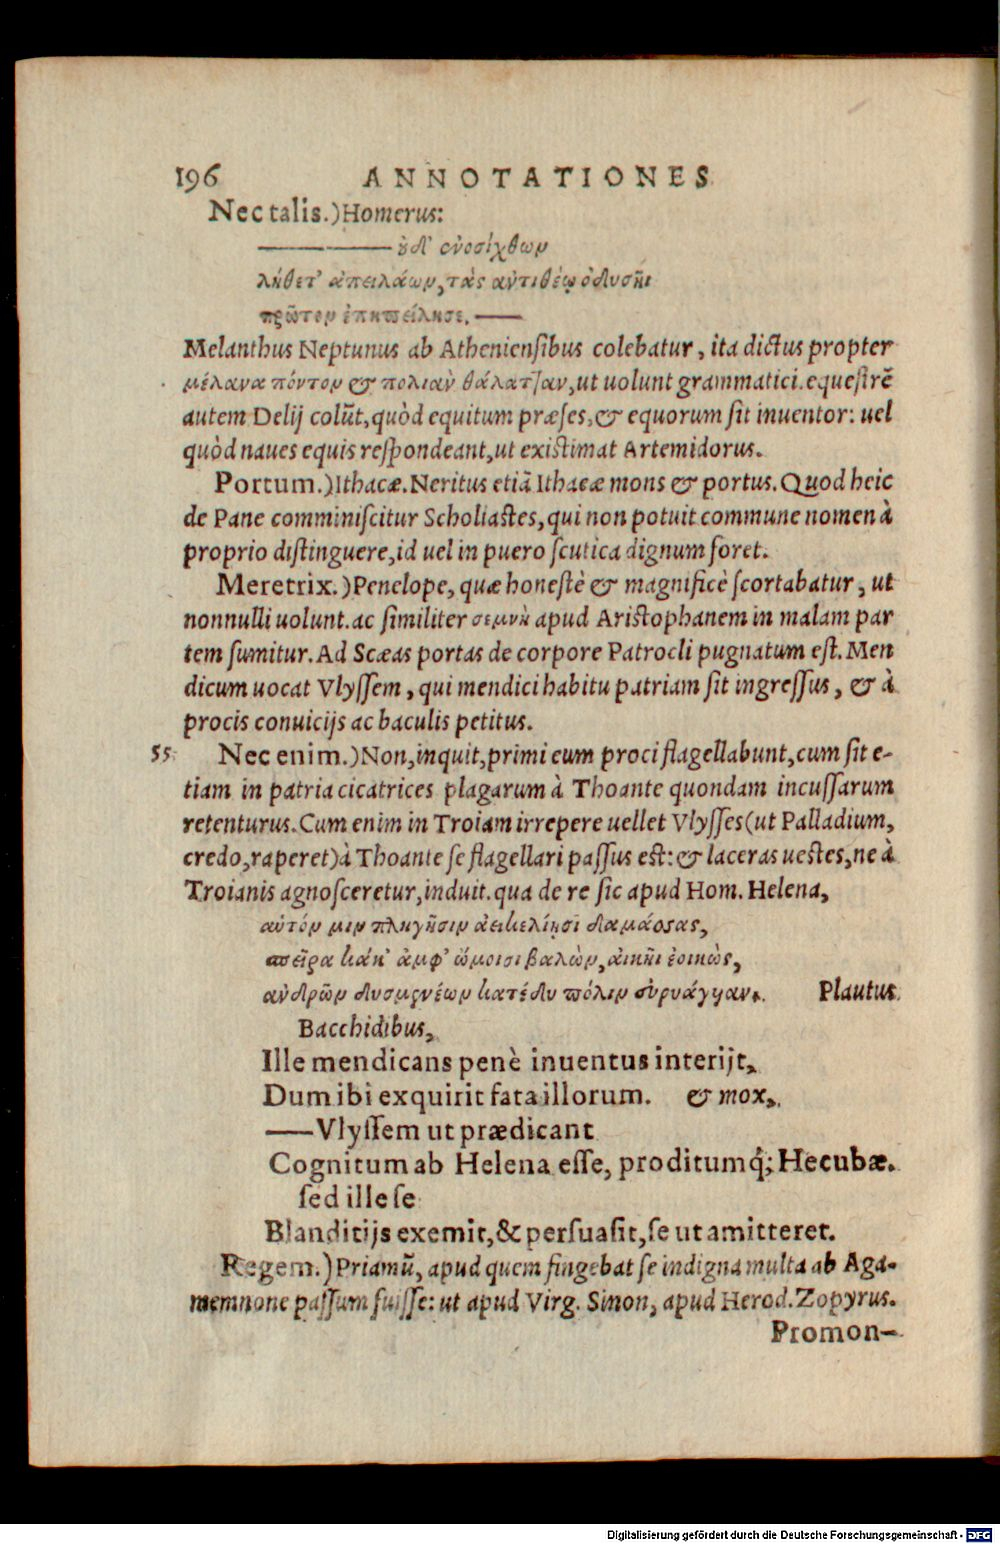 196 ANNOTATIONES
Nec talis.) Homerus:
—— οὐδ' ἐνοσίχθων
λήθετ' ἀπειλάων, τὰς ἀντιθέῳ ὀδυσῆϊ
πρῶτον ἐπηπείλησε. ——
Melanthus Neptunus ab Atheniensibus colebatur, ita dictus propter
μέλανα πόντον & πολιὰν θάλατταν, ut uolunt grammatici. equestrẽ
autem Delij colũt, quòd equitum præses, & equorum sit inuentor: uel
quòd naues equis respondeant, ut existimat Artemidorus.
Portum.) Ithacæ. Neritus etiã Ithacæ mons & portus. Quod heic
de Pane comminiscitur Scholiastes, qui non potuit commune nomen à
proprio distinguere, id uel in puero scutica dignum foret.
Meretrix.) Penelope, quæ honestè & magnificè scortabatur, ut
nonnulli uolunt. ac similiter σεμνὴ apud Aristophanem in malam par
tem sumitur. Ad Scæas portas de corpore Patrocli pugnatum est. Men
dicum uocat Vlyssem, qui mendici habitu patriam sit ingressus, & à
procis conuicijs ac baculis petitus.
55 Nec enim.) Non, inquit, primi eum proci flagellabunt, cum sit e-
tiam in patria cicatrices plagarum à Thoante quondam incussarum
retenturus. Cum enim in Troiam irrepere uellet Vlysses (ut Palladium,
credo, raperet) à Thoante se flagellari passus est: & laceras uestes, ne à
Troianis agnosceretur, induit. qua de re sic apud Hom. Helena,
αὐτόν μιν πληγῇσιν ἀεικελίῃσι δαμάσσας,
σπεῖρα κάκ' ἀμφ' ὤμοισι βαλὼν, οἰκῆϊ ἐοικὼς,
ἀνδρῶν δυσμενέων κατέδυ πόλιν εὐρυάγυιαν. Plautus
Bacchidibus,
Ille mendicans penè inuentus interijt,
Dum ibi exquirit fata illorum. & mox,
—— Vlyssem ut prædicant
Cognitum ab Helena esse, proditumq́; Hecubæ.
sed ille se
Blanditijs exemit, & persuasit, se ut amitteret.
Regem.) Priamũ, apud quem fingebat se indigna multa ab Aga-
memnone passum fuisse: ut apud Virg. Sinon, apud Herod. Zopyrus.
Promon-
Digitalisierung gefördert durch die Deutsche Forschungsgemeinschaft - DFG